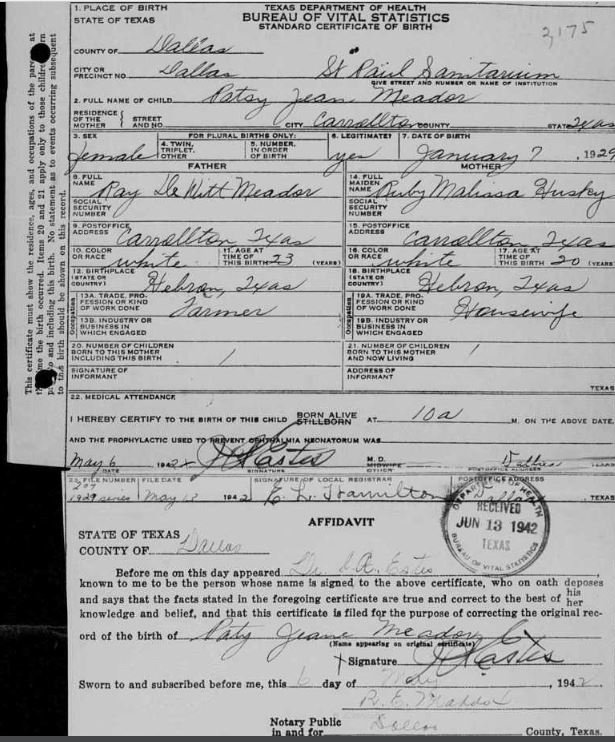 1. PLACE OF BIRTH
STATE OF TEXAS
TEXAS DEPARTMENT OF HEALTH
BUREAU OF VITAL STATISTICS
STANDARD CERTIFICATE OF BIRTH
3175
COUNTY OF Dallas
CITY OR PRECINCT NO. Dallas St Paul Sanitarium
GIVE STREET AND NUMBER OR NAME OF INSTITUTION
2. FULL NAME OF CHILD Patsy Jean Meador
RESIDENCE OF THE MOTHER { STREET AND NO. CITY Carrollton COUNTY STATE Texas
3. SEX female
FOR PLURAL BIRTHS ONLY:
4. TWIN, TRIPLET, OTHER
5. NUMBER, IN ORDER OF BIRTH
6. LEGITIMATE? yes
7. DATE OF BIRTH January 7, 1929
FATHER
MOTHER
8. FULL NAME Ray De Witt Meador
14. FULL MAIDEN NAME Ruby Malissa Huskey
SOCIAL SECURITY NUMBER
SOCIAL SECURITY NUMBER
9. POSTOFFICE ADDRESS Carrollton Texas
15. POSTOFFICE ADDRESS Carrollton Texas
10. COLOR OR RACE white
11. AGE AT TIME OF THIS BIRTH 23 (YEARS)
16. COLOR OR RACE white
17. AGE AT TIME OF THIS BIRTH 20 (YEARS)
12. BIRTHPLACE (STATE OR COUNTRY) Hebron, Texas
18. BIRTHPLACE (STATE OR COUNTRY) Hebron, Texas
Occupation
13A. TRADE, PROFESSION OR KIND OF WORK DONE Farmer
Occupation
19A. TRADE, PROFESSION OR KIND OF WORK DONE Housewife
13B. INDUSTRY OR BUSINESS IN WHICH ENGAGED
19B. INDUSTRY OR BUSINESS IN WHICH ENGAGED
20. NUMBER OF CHILDREN BORN TO THIS MOTHER INCLUDING THIS BIRTH 1
21. NUMBER OF CHILDREN BORN TO THIS MOTHER AND NOW LIVING 1
SIGNATURE OF INFORMANT
ADDRESS OF INFORMANT
TEXAS
22. MEDICAL ATTENDANCE
I HEREBY CERTIFY TO THE BIRTH OF THIS CHILD BORN ALIVE STILLBORN AT 10a M. ON THE ABOVE DATE.
AND THE PROPHYLACTIC USED TO PREVENT OPHTHALMIA NEONATORUM WAS
May 6 1942 Estes M. D. MIDWIFE Dallas TEXAS
DATE SIGNATURE POSTOFFICE ADDRESS
23. FILE NUMBER FILE DATE SIGNATURE OF LOCAL REGISTRAR POSTOFFICE ADDRESS
1929 series May 1942 E. L. Hamilton TEXAS
DEPARTMENT OF HEALTH
RECEIVED
JUN 13 1942
TEXAS
BUREAU OF VITAL STATISTICS
AFFIDAVIT
STATE OF TEXAS
COUNTY OF Dallas
Before me on this day appeared Dr. Estes,
known to me to be the person whose name is signed to the above certificate, who on oath deposes
and says that the facts stated in the foregoing certificate are true and correct to the best of his her
knowledge and belief, and that this certificate is filed for the purpose of correcting the original rec-
ord of the birth of Paty Jeane Meador
(Name appearing on original certificate)
Signature Estes
Sworn to and subscribed before me, this 6 day of May, 1942
R. E. Maddox
Notary Public in and for Dallas County, Texas.